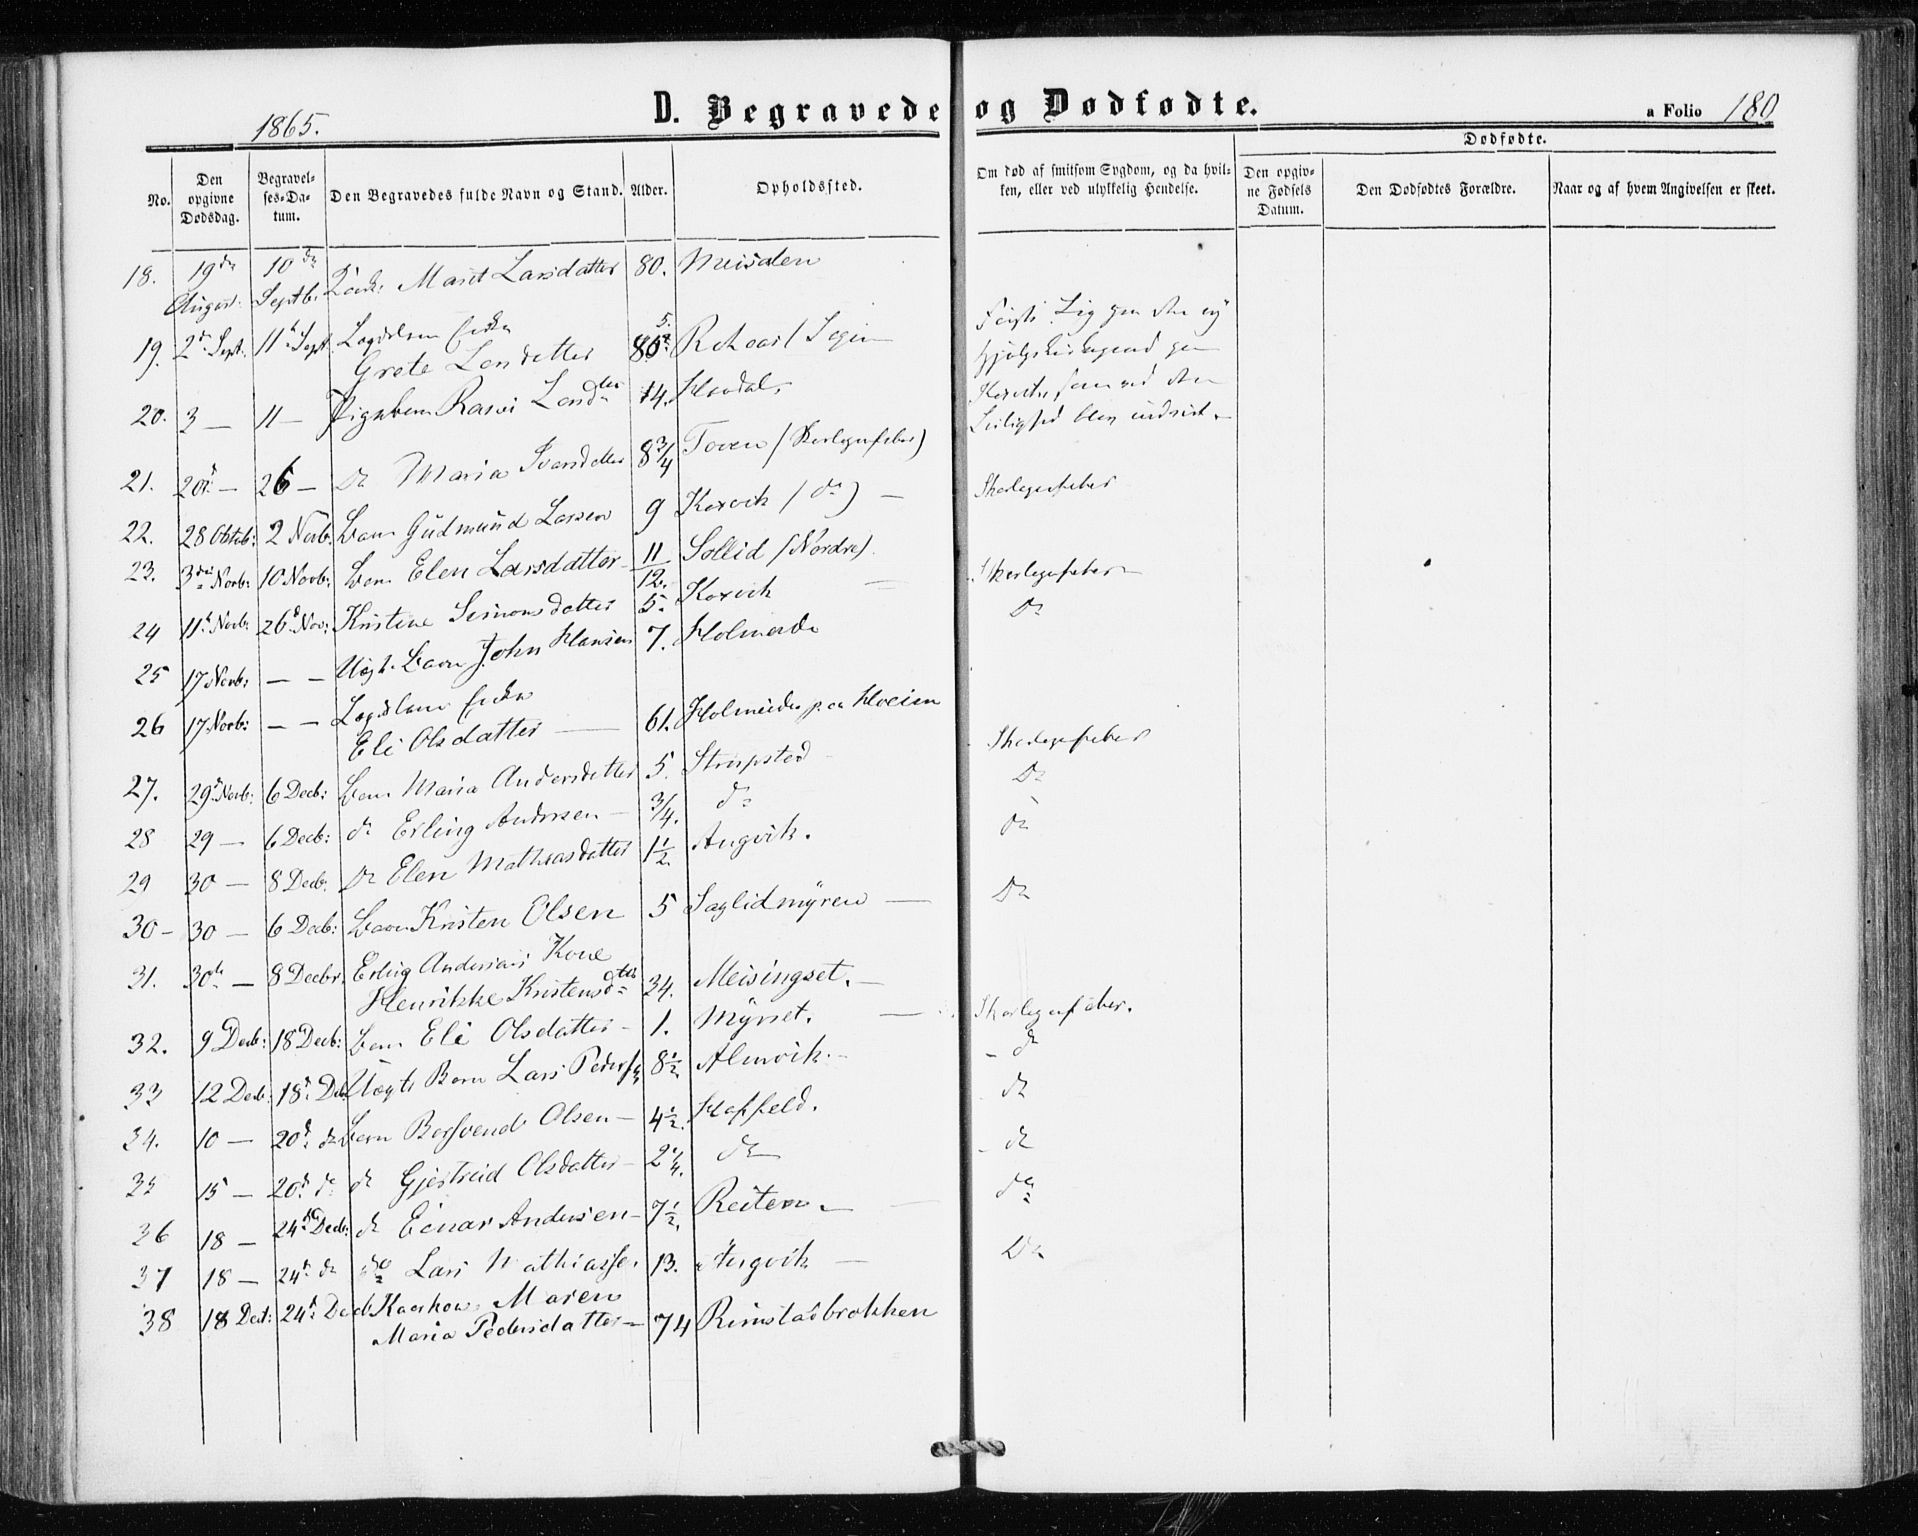 1865.
D. Begravede og Dødfødte.
a Folio 180
No.
Den opgivne Dødsdag.
Begravelses-Datum.
Den Begravedes fulde Navn og Stand.
Alder.
Opholdssted.
Om død af smitsom Sygdom, og da hvilken, eller ved ulykkelig Hendelse.
Dødfødte.
Den opgivne Fødsels Datum.
Den Dødfødtes Forældre.
Naar og af hvem Angivelsen er skeet.
18. 19de August. 10de Septb: Marit Larsdatter 80. Meisalen
19. 2d Sept. 11t Sept. Logdslem Enke
Grete Larsdatter 85
20. 3 — 11 — Pigebarn 14. Hovdal
Leilighed blev indviet
21. 20d — 26 — do Maria Ivarsdatter 8 3/4 Toven (Skarlagensfeber)
22. 28 Oktb: 2 Novb. Barn Gudmund Larsen 9 Korvik (do) — Skarlagensfeber
23. 3die Novb: 10 Novb: Barn Elen Larsdatter 11/12 Sollid (Nordre)
24 11t Novb: 26d Nov: Kristine Simonsdatter 5. Korvik — Skarlagensfeber
25 17 Novb: — — Uægt. Barn John Hansen 7. Holmeide Do
26 17 Novb: — — Logdslem Enke
Eli Olsdatter — 61. Holmeide paa Hoeim
27. 29d Novb: 6 Decb: Barn Maria Andersdatter 5. Strupstad Skarlagensfeber
28 29 — 6 Decb: do Erling Andersen — 3/4. do Do
29 30 — 8 Decb. Do Elen Mathiasdatter 1 1/2 Angvik. do
30 - 30 — 6 Decb: Barn Kristen Olsen 5 Saglidmyren — Do
31. 30de — 8 Decbr. Erling Andersens Kone
Henrikke Kristensdter 34. Meisingset.
32. 9 Decb: 18 Decb: Barn Eli Olsdatter — 1. Myrset. — Skarlagensfeber.
33 12 Decb: 18d Dec Uægte Barn Lars Peders 8 1/2 Alnvik. — do
34. 10 — 20d do Barn Bersvend Olsen — 4 1/2. Hoffeld. do
35 15 — 20d do do Gjertrud Olsdatter — 2 1/4. do — do
36 18 — 24de Decb: do Einar Andersen — 7 1/2. Reiten. — do
37 18 — 24d do do Lars Mathiassen 13. Angvik — Do
38 18 Dect: 24d Decb Kaarkone Maren
Maria Pedersdatter — 74 Rimstadbrokken